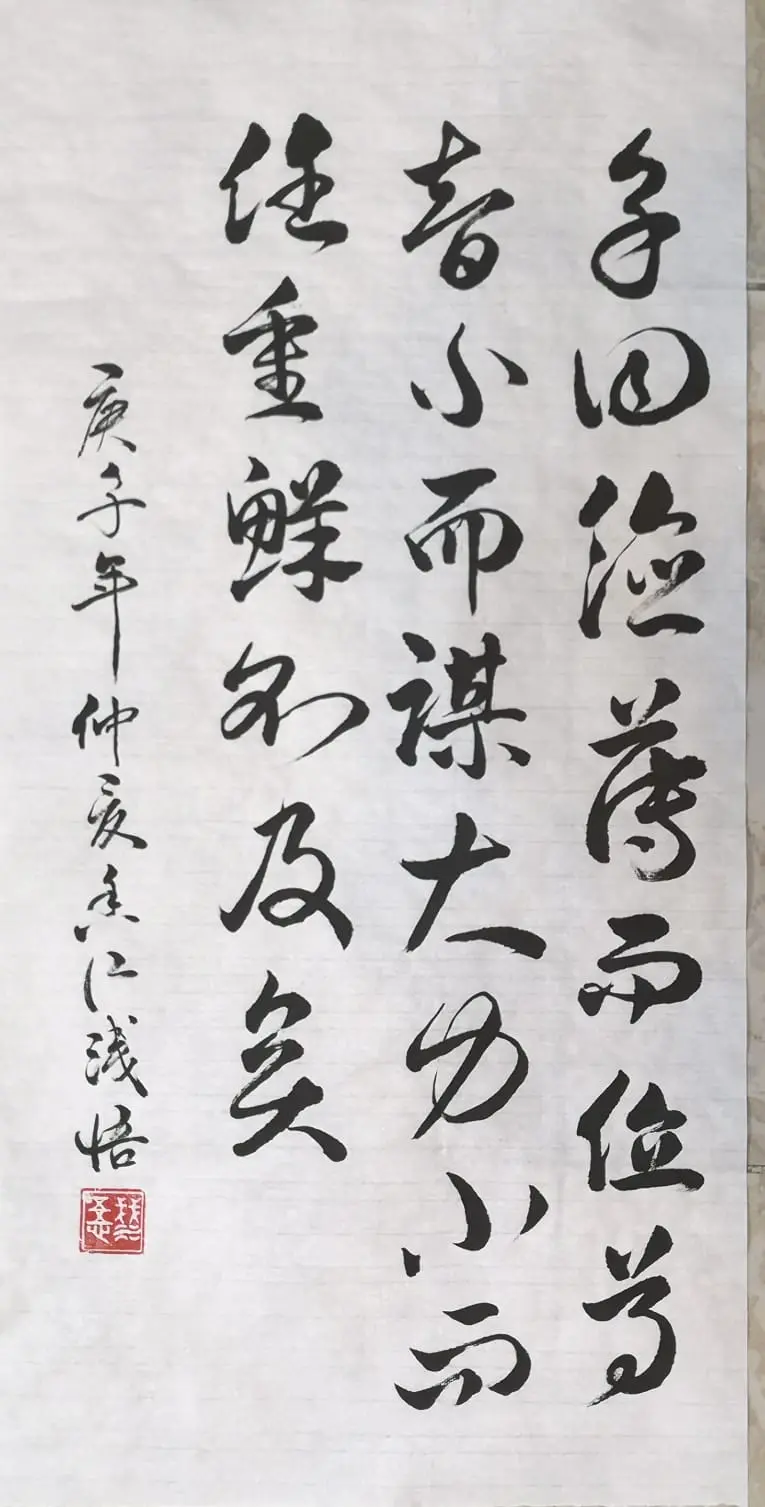 子曰德薄而位尊
智小而謀大力小而
任重鮮不及矣
庚子年仲夏浅悟